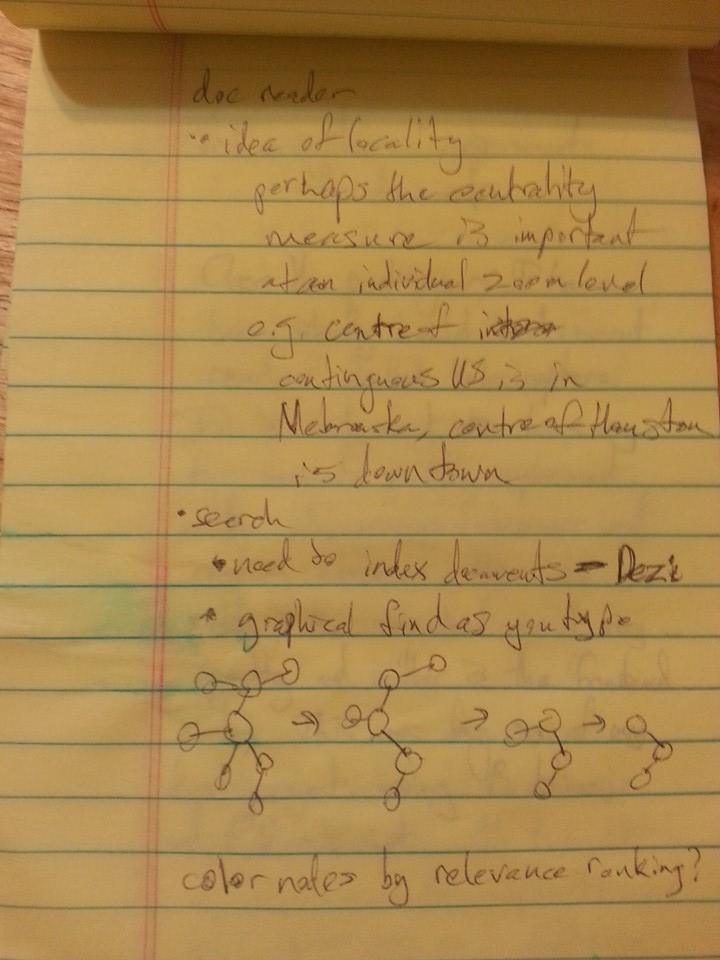 doc reader
·· idea of locality
perhaps the centrality
measure is important
at an individual zoom level
e.g. centre of
continguous US is in
Nebraska, centre of Houston
is downtown
• search
• need to index documents – Dezi
* graphical find as you type
color nates by relevance ranking?